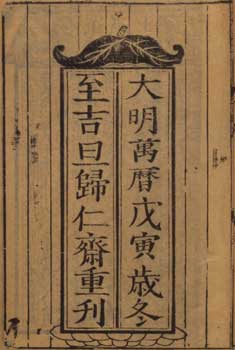 大明萬曆戊寅歲冬
至吉旦歸仁齋重刊